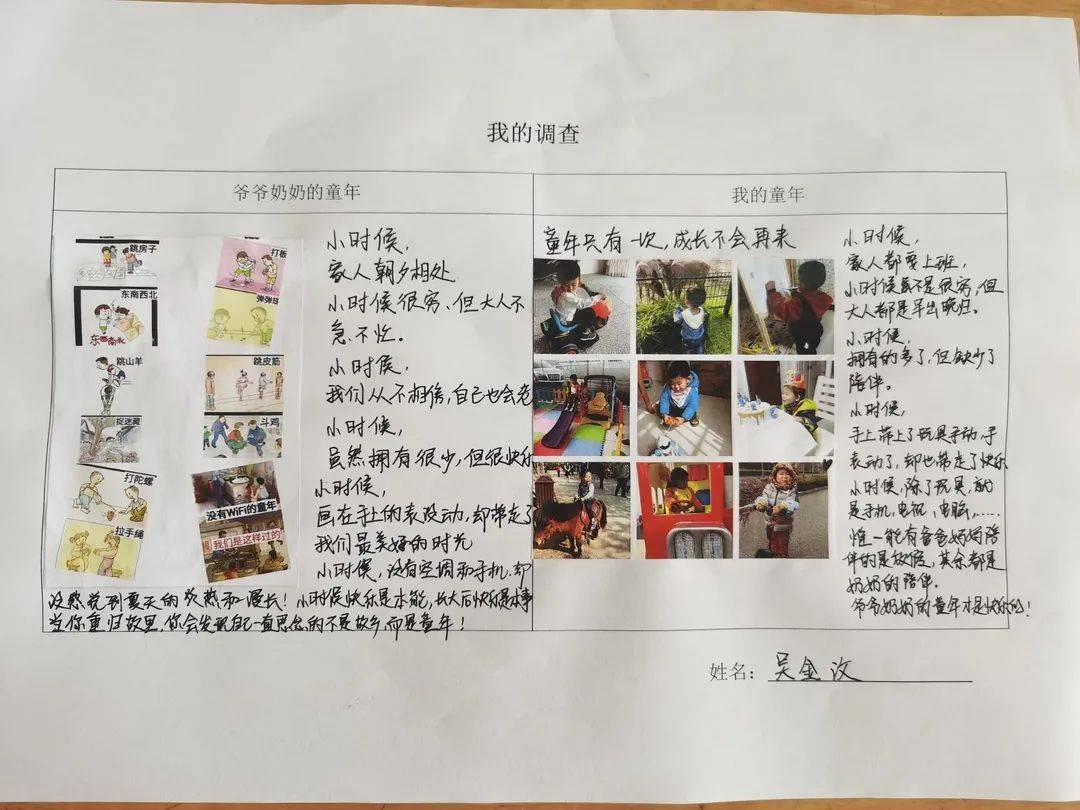 我的调查
爷爷奶奶的童年
我的童年
跳房子
打板
东南西北
东西南北
弹弹球
跳山羊
跳皮筋
捉迷藏
斗鸡
打陀螺
没有WiFi的童年
拉手绳
我们是这样过的
小时候,
家人朝夕相处
小时候很穷、但大人不
急、不忙。
小时候,
我们从不相信,自己也会老
小时候,
虽然拥有很少,但很快乐
小时候,
画在手上的表没动,却带走了
我们最美好的时光
小时候,没有空调和手机,却
没感觉到夏天的炎热和漫长!小时候快乐是本能,长大后快乐是本事
当你重归故里,你会发现自己一直思念的不是故乡,而是童年!
童年只有一次,成长不会再来
小时候,
家人都要上班,
小时候虽不是很穷,但
大人都是早出晚归。
小时候,
拥有的多了,但缺少了
陪伴。
小时候,
手上带上了玩具手动,手
表动了,却也带走了快乐
小时候,除了玩具,就
是手机,电视,电脑,……
惟一能有爸爸妈妈陪
伴的是放假,其余都是
奶奶的陪伴。
爷爷奶奶的童年才是快乐的!
姓名: 吴金汶